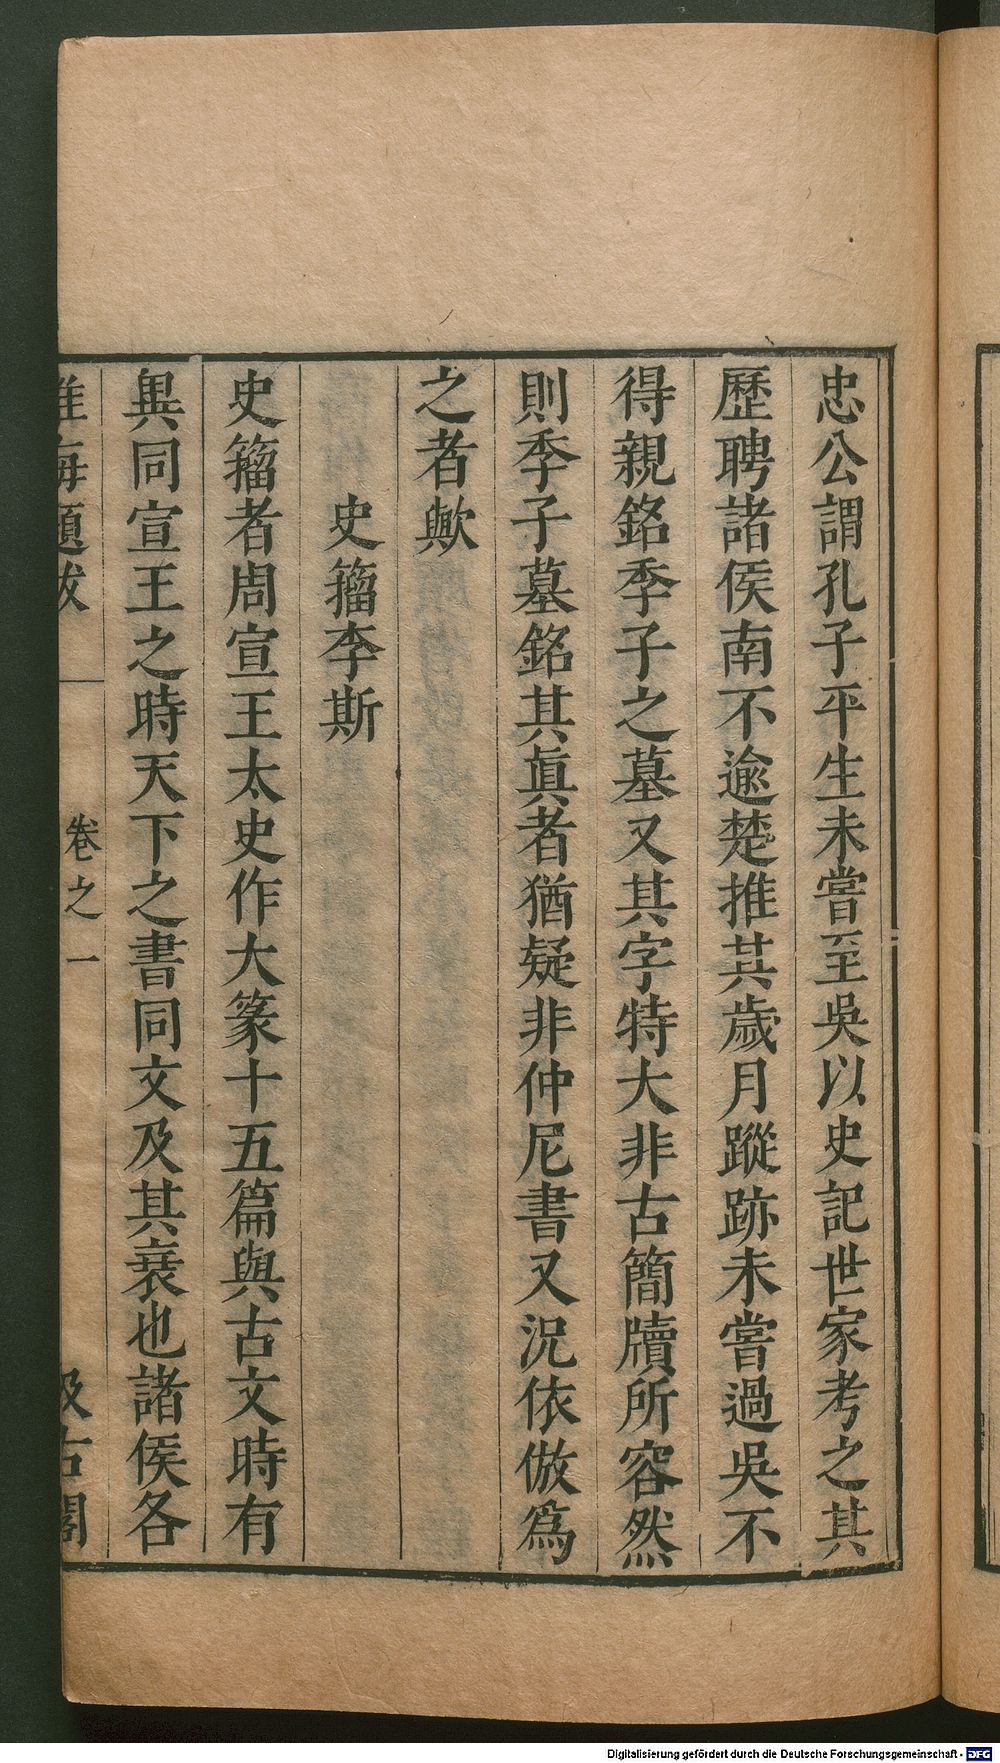 忠公謂孔子平生未嘗至吳以史記世家考之其
歷聘諸侯南不逾楚推其歲月蹤跡未嘗過吳不
得親銘季子之墓又其字特大非古簡牘所容然
則季子墓銘其眞者猶疑非仲尼書又況依倣爲
之者歟
史籀李斯
史籀者周宣王太史作大篆十五篇與古文時有
異同宣王之時天下之書同文及其衰也諸侯各
卷之一
Digitalisierung gefördert durch die Deutsche Forschungsgemeinschaft - DFG